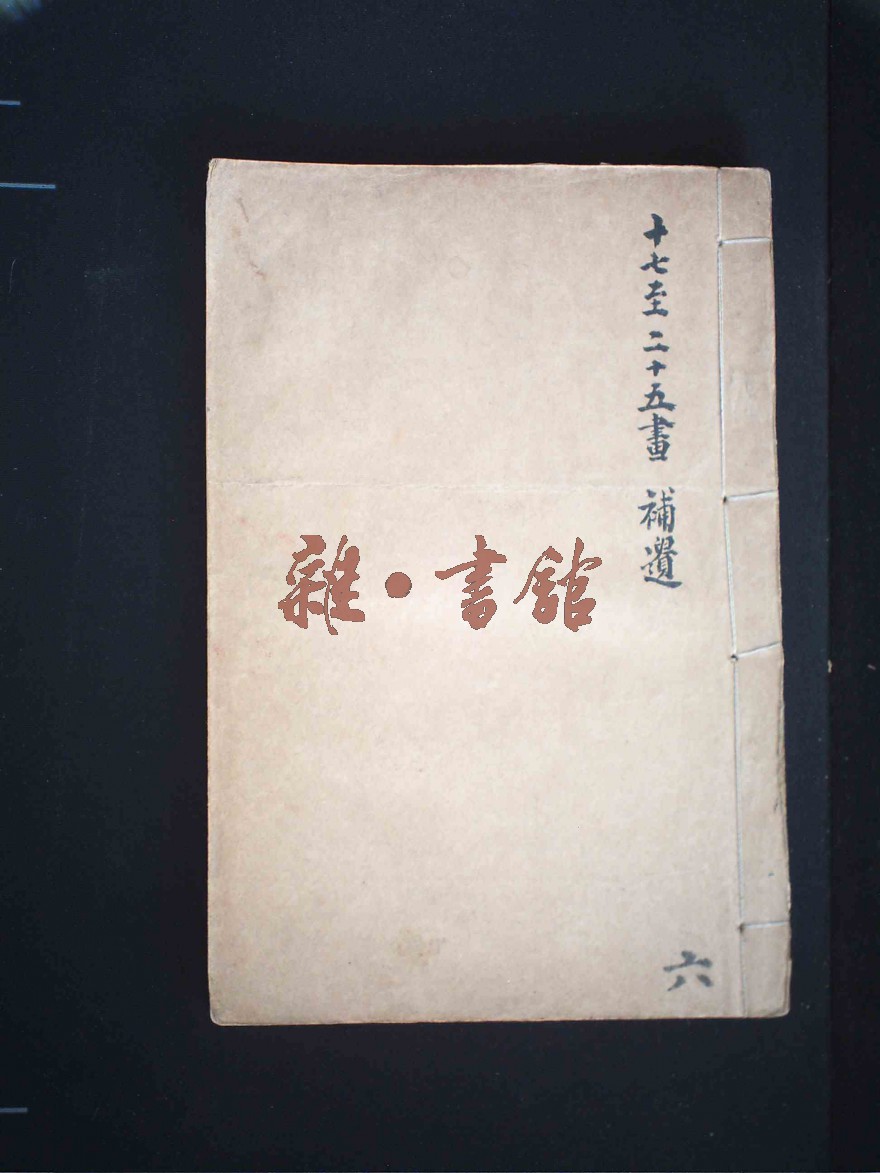 十七至二十五畫 補遺
六
雜·書館